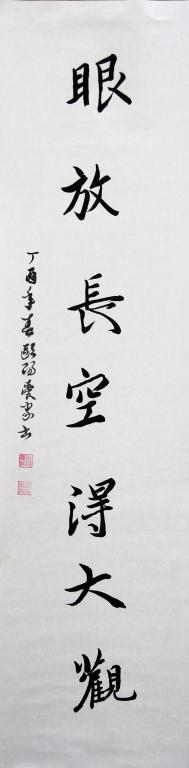 眼放長空得大觀
丁酉年春歐陽雲書